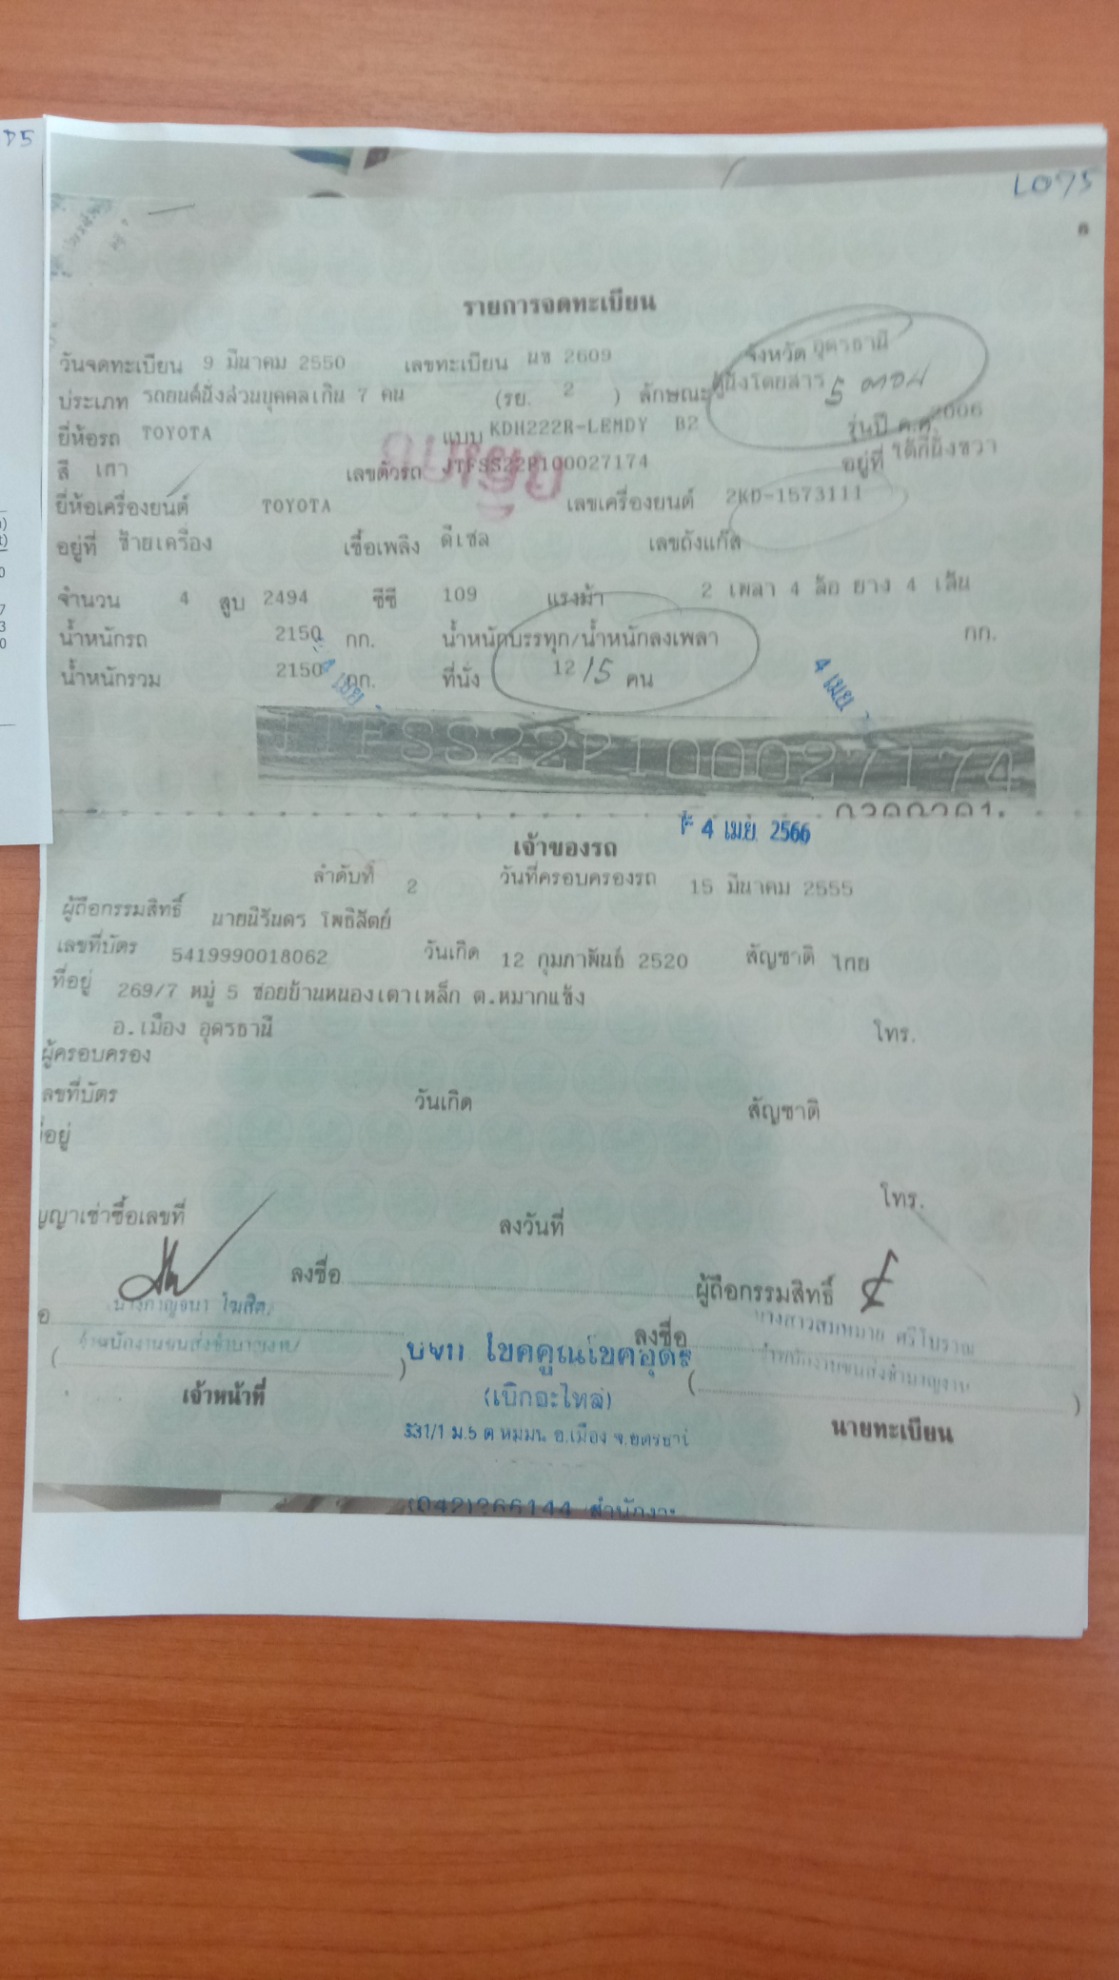 LO75
รายการจดทะเบียน
วันจดทะเบียน 9 มีนาคม 2550 เลขทะเบียน นข 2609 จังหวัด อุดรธานี
ประเภท รถยนต์นั่งส่วนบุคคลเกิน 7 คน (รย. 2 ) ลักษณะ ตู้นั่งโดยสาร 5 ตอน
ยี่ห้อรถ TOYOTA แบบ KDH222R-LEMDY B2 รุ่นปี ค.ศ. 2006
สี เทา เลขตัวรถ JTFSS22P100027174 อยู่ที่ ใต้ที่นั่งขวา
ยี่ห้อเครื่องยนต์ TOYOTA เลขเครื่องยนต์ 2KD-1573111
อยู่ที่ ซ้ายเครื่อง เชื้อเพลิง ดีเซล เลขถังแก๊ส
จำนวน 4 สูบ 2494 ซีซี 109 แรงม้า 2 เพลา 4 ล้อ ยาง 4 เส้น
น้ำหนักรถ 2150 กก. น้ำหนักบรรทุก/น้ำหนักลงเพลา กก.
น้ำหนักรวม 2150 กก. ที่นั่ง 12 15 คน
4 เมย 4 เมย
JTFSS22P100027174
4 เมย 2566
เจ้าของรถ
ลำดับที่ 2 วันที่ครอบครองรถ 15 มีนาคม 2555
ผู้ถือกรรมสิทธิ์ นายนิรันดร โพธิสัตย์
เลขที่บัตร 5419990018062 วันเกิด 12 กุมภาพันธ์ 2520 สัญชาติ ไทย
ที่อยู่ 269/7 หมู่ 5 ซอยบ้านหนองเตาเหล็ก ต.หมากแข้ง
อ.เมือง อุดรธานี โทร.
ผู้ครอบครอง
ลขที่บัตร วันเกิด สัญชาติ
อยู่
โทร.
ญญาเช่าซื้อเลขที่ ลงวันที่
ลงชื่อ ผู้ถือกรรมสิทธิ์
นางกาญจนา โฆสิต
เจ้าพนักงานขนส่งชำนาญงาน
ลงชื่อ นางสาวสมหมาย ศรีโบราณ
เจ้าพนักงานขนส่งชำนาญงาน
( ) ( )
เจ้าหน้าที่ นายทะเบียน
โชคคูณโชคอุดร
(เบิกอะไหล่)
331/1 ม.5 ต หมมน อ.เมือง จ.อุดรธานี
(042)266144 สำนักงาน